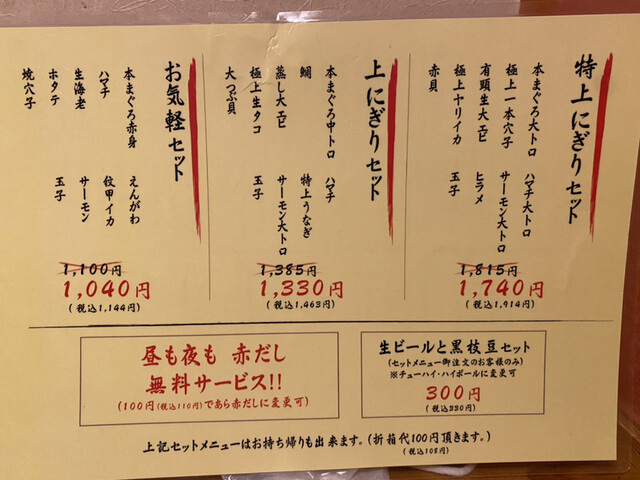 特上にぎりセット
本まぐろ大トロ　ハマチ大トロ
極上一本穴子　サーモン大トロ
有頭生大エビ　ヒラメ
極上ヤリイカ　玉子
赤貝
1,815円
1,740円
(税込1,914円)
上にぎりセット
本まぐろ中トロ　ハマチ
鯛　特上うなぎ
蒸し大エビ　サーモン大トロ
極上生タコ　玉子
大つぶ貝
1,385円
1,330円
(税込1,463円)
お気軽セット
本まぐろ赤身　えんがわ
ハマチ　紋甲イカ
生海老　サーモン
ホタテ　玉子
焼穴子
1,100円
1,040円
(税込1,144円)
昼も夜も 赤だし
無料サービス!!
(100円(税込110円)であら赤だしに変更可)
生ビールと黒枝豆セット
(セットメニュー御注文のお客様のみ)
※チューハイ・ハイボールに変更可
300円
(税込330円)
上記セットメニューはお持ち帰りも出来ます。(折箱代100円頂きます。)
(税込108円)